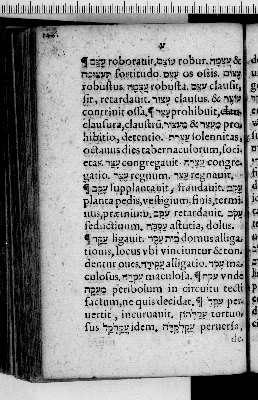 ע
¶ עָצַם roborauit, עוֹצֶם robur. עָצְמָה &
תַּעֲצֻמָה fostitudo. עֶצֶם os ossis. עָצוּם
robustus. עֲצֻמָה robusta עָצַם clausit,
sit, retardauit. עוֹצֵר clausus. &
contriuit ossa, ¶ עָצַר prohibuit,
clausura, claustrũ, מַעְצוֹר & מַעֲצָר pro
hibitio, detentio. עֲצֶרֶת solennitas,
octauus dies tabernaculorum, soci,
etas. עָצַר congregauit. עֲצָרָה congre,
gatio. עֶצֶר regnum. עָצַר regnauit.
¶ עָקַב supplantauit, fraudauit. עָקֵב
planta pedis, vestigium, finis, termi
nus, præmium. עִקֵּב retardauit. עָקוֹב
seductiuum, עָקְבָה astutia, dolus.
¶ עָקַד ligauit. בֵּית עֵקֶד domus alliga,
tionis, locus vbi vinciuntur & ton,
dentur oues. עֲקֵידָה alligatio. עָקֹד ma,
culosus. עֲקֻדָּה maculosa. ¶ עקה vnde
מַעֲקֶה peribolum in circuitu tecti
factum, ne quis decidat. ¶ עָקַל per,
uertit, incuruauit. עֲקַלָּתוֹן tortuo,
sus עֲקַלְקַל idem. עֲקַלְקַלָּה peruersa,
de,